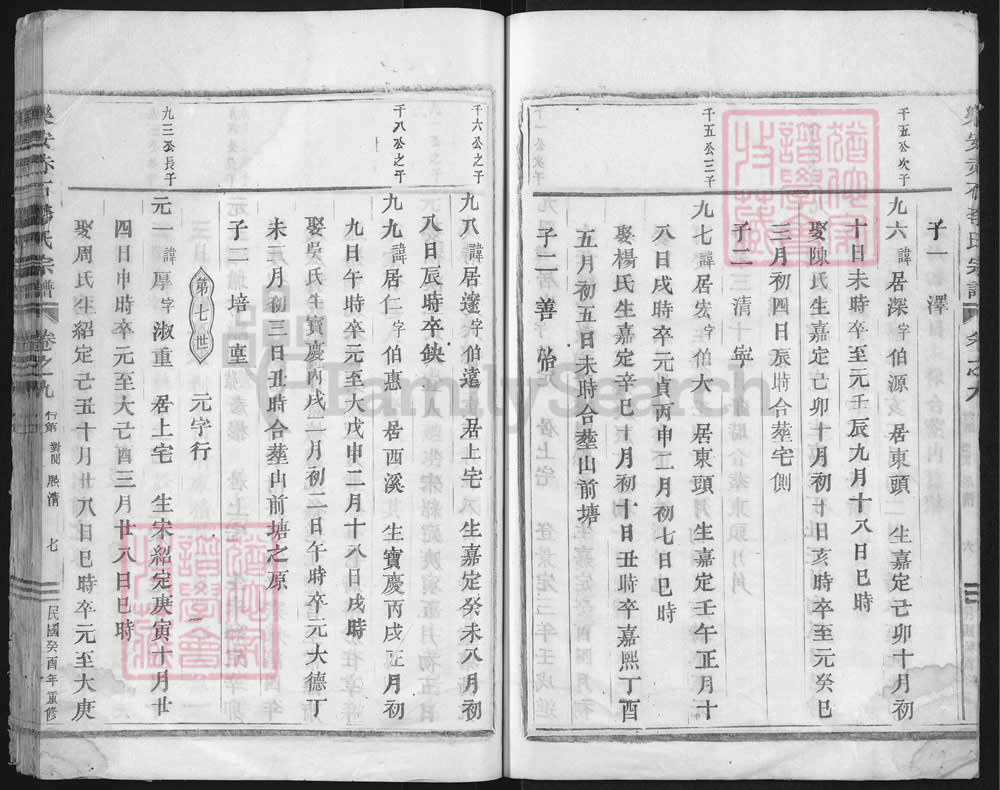 子一 澤
千五公次子
九六諱居深字伯源 居東頭 生嘉定己卯十月初
十日未時卒至元壬辰九月十八日巳時
娶陳氏生嘉定己卯十月初十日亥時卒至元癸巳
三月初四日辰時合塟宅側
子二 清 寧
千五公三子
九七諱居宏字伯大 居東頭 生嘉定壬午正月十
八日戌時卒元貞丙申二月初七日巳時
娶楊氏生嘉定辛巳十月初十日丑時卒嘉熙丁酉
五月初五日未時合塟山前塘
子二 善 怡
千六公之子
九八諱居逵字伯遠 居上宅 生嘉定癸未八月初
八日辰時卒缺
千八公之子
九九諱居仁字伯惠 居西溪 生寶慶丙戌正月初
九日午時卒元至大戊申二月十八日戌時
娶吳氏生寶慶丙戌二月初二日午時卒元大德丁
未元月初三日丑時合塟山前塘之原
子二 培 堇
第七世 元字行
九三公長子
元一諱厚字淑重 居上宅 生宋紹定庚寅十月廿
四日申時卒元至大己酉三月廿八日巳時
娶周氏生紹定己丑十月廿八日巳時卒元至大庚
氏宗譜 卷之九 行第 對閱 熙清 七 民國癸酉年重修